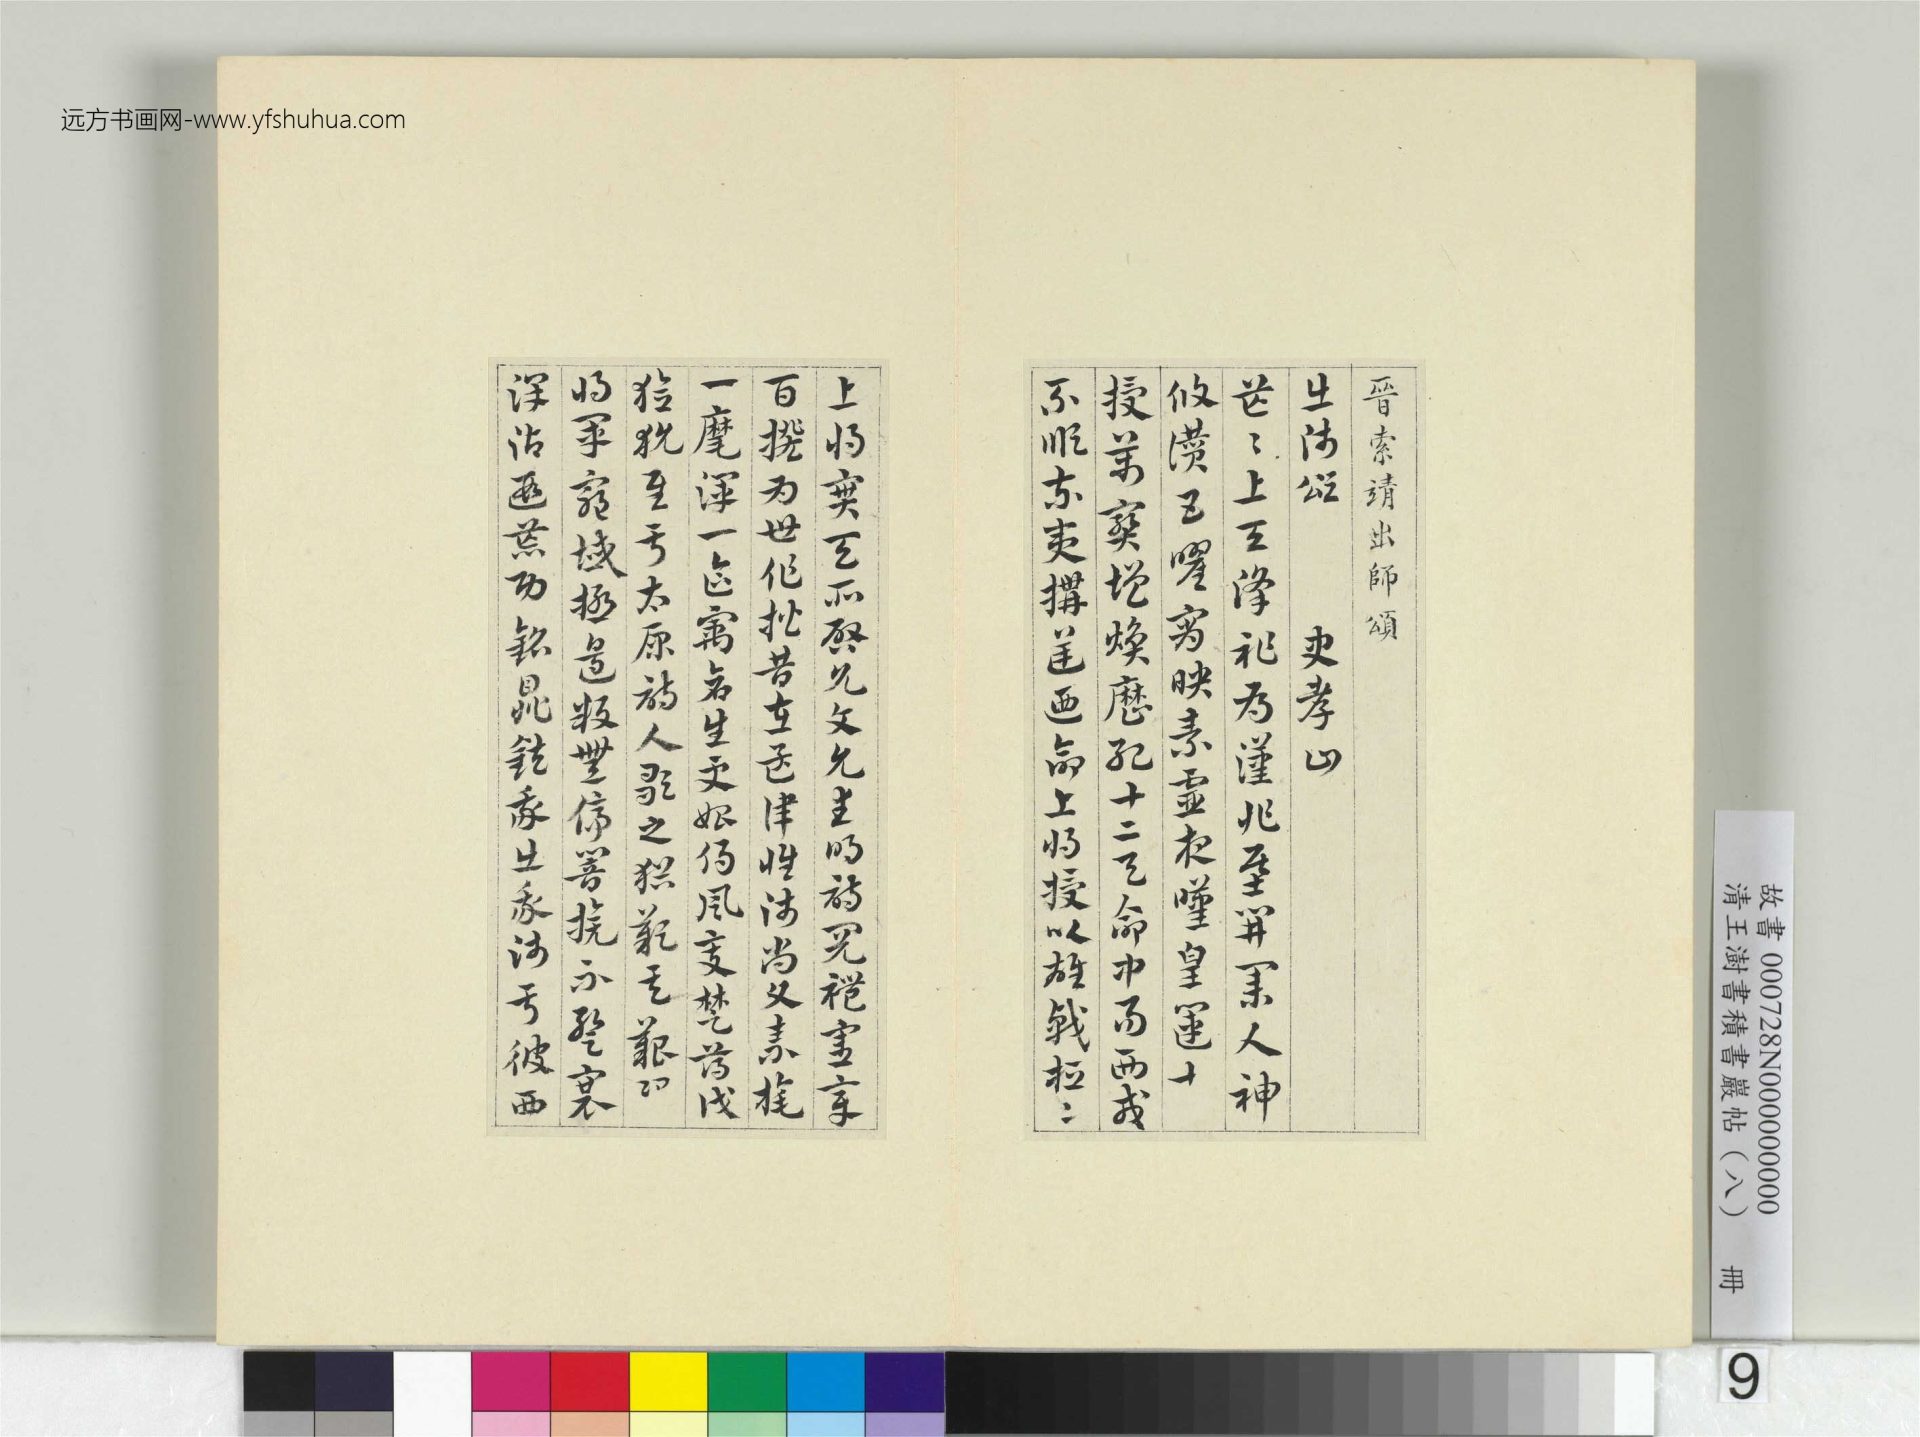 远方书画网-www.yfshuhua.com
晉索靖出師頌
出師頌 史孝山
茫〻上天降祚為漢作基開業人神
攸讚五曜宵映素靈夜歎皇運來
授萬寶增煥歷紀十二天命中易西戎
不順東夷構逆迺命上將授以雄戟桓〻
上將實天所啓允文允武明詩閱禮憲章
百揆為世作楷昔在孟津惟師尚父素旄
一麾渾一區宇蒼生更始朔風變楚薄伐
獫狁至于太原詩人歌之猶歎其艱況
將軍窮域極邊鼓無停響旗不蹔褰
澤沾遐荒功銘鼎鉉我出我師于彼西
故書 000728N000000000
清王澍書積書巖帖（八） 冊
9